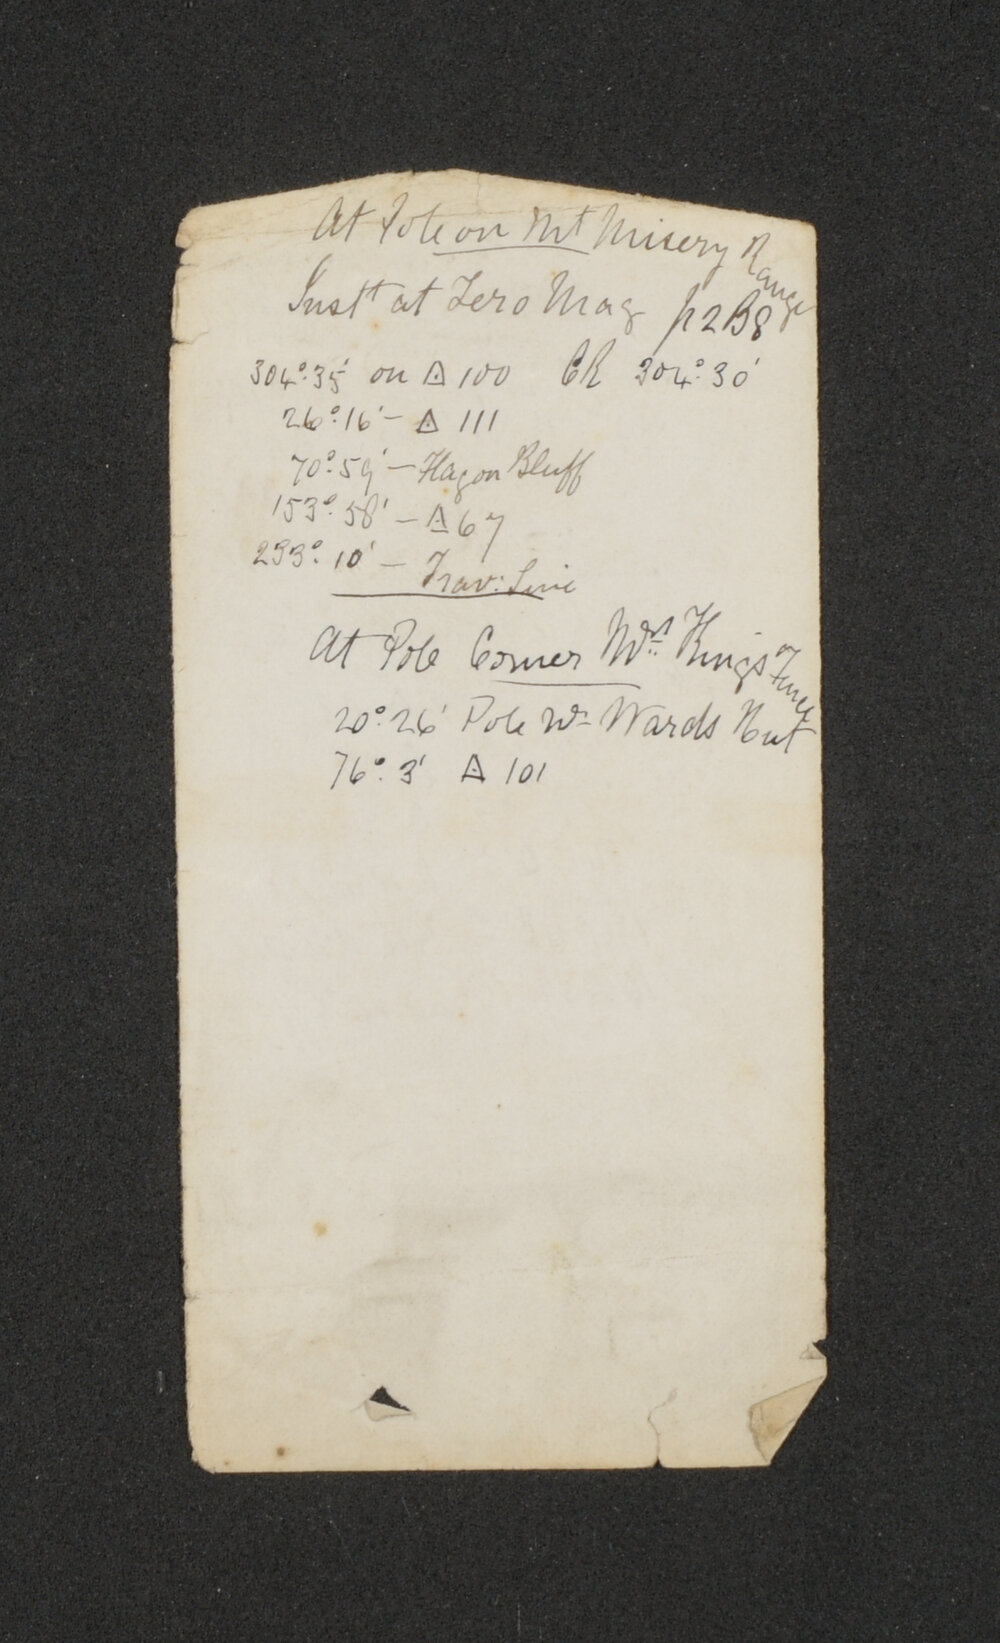 At Pole on Mt Misery Range
Instt at Zero Mag p2B8
304°.35' on △ 100 CR 304°.30'
26°.16' – △ 111
70°.59' – Flagon Bluff
153°.58' – △ 67
293°.10' – Trav: Line
At Pole Corner Wm Kings Fence
20°.26' Pole Wm Wards Hut
76°.3' △ 101